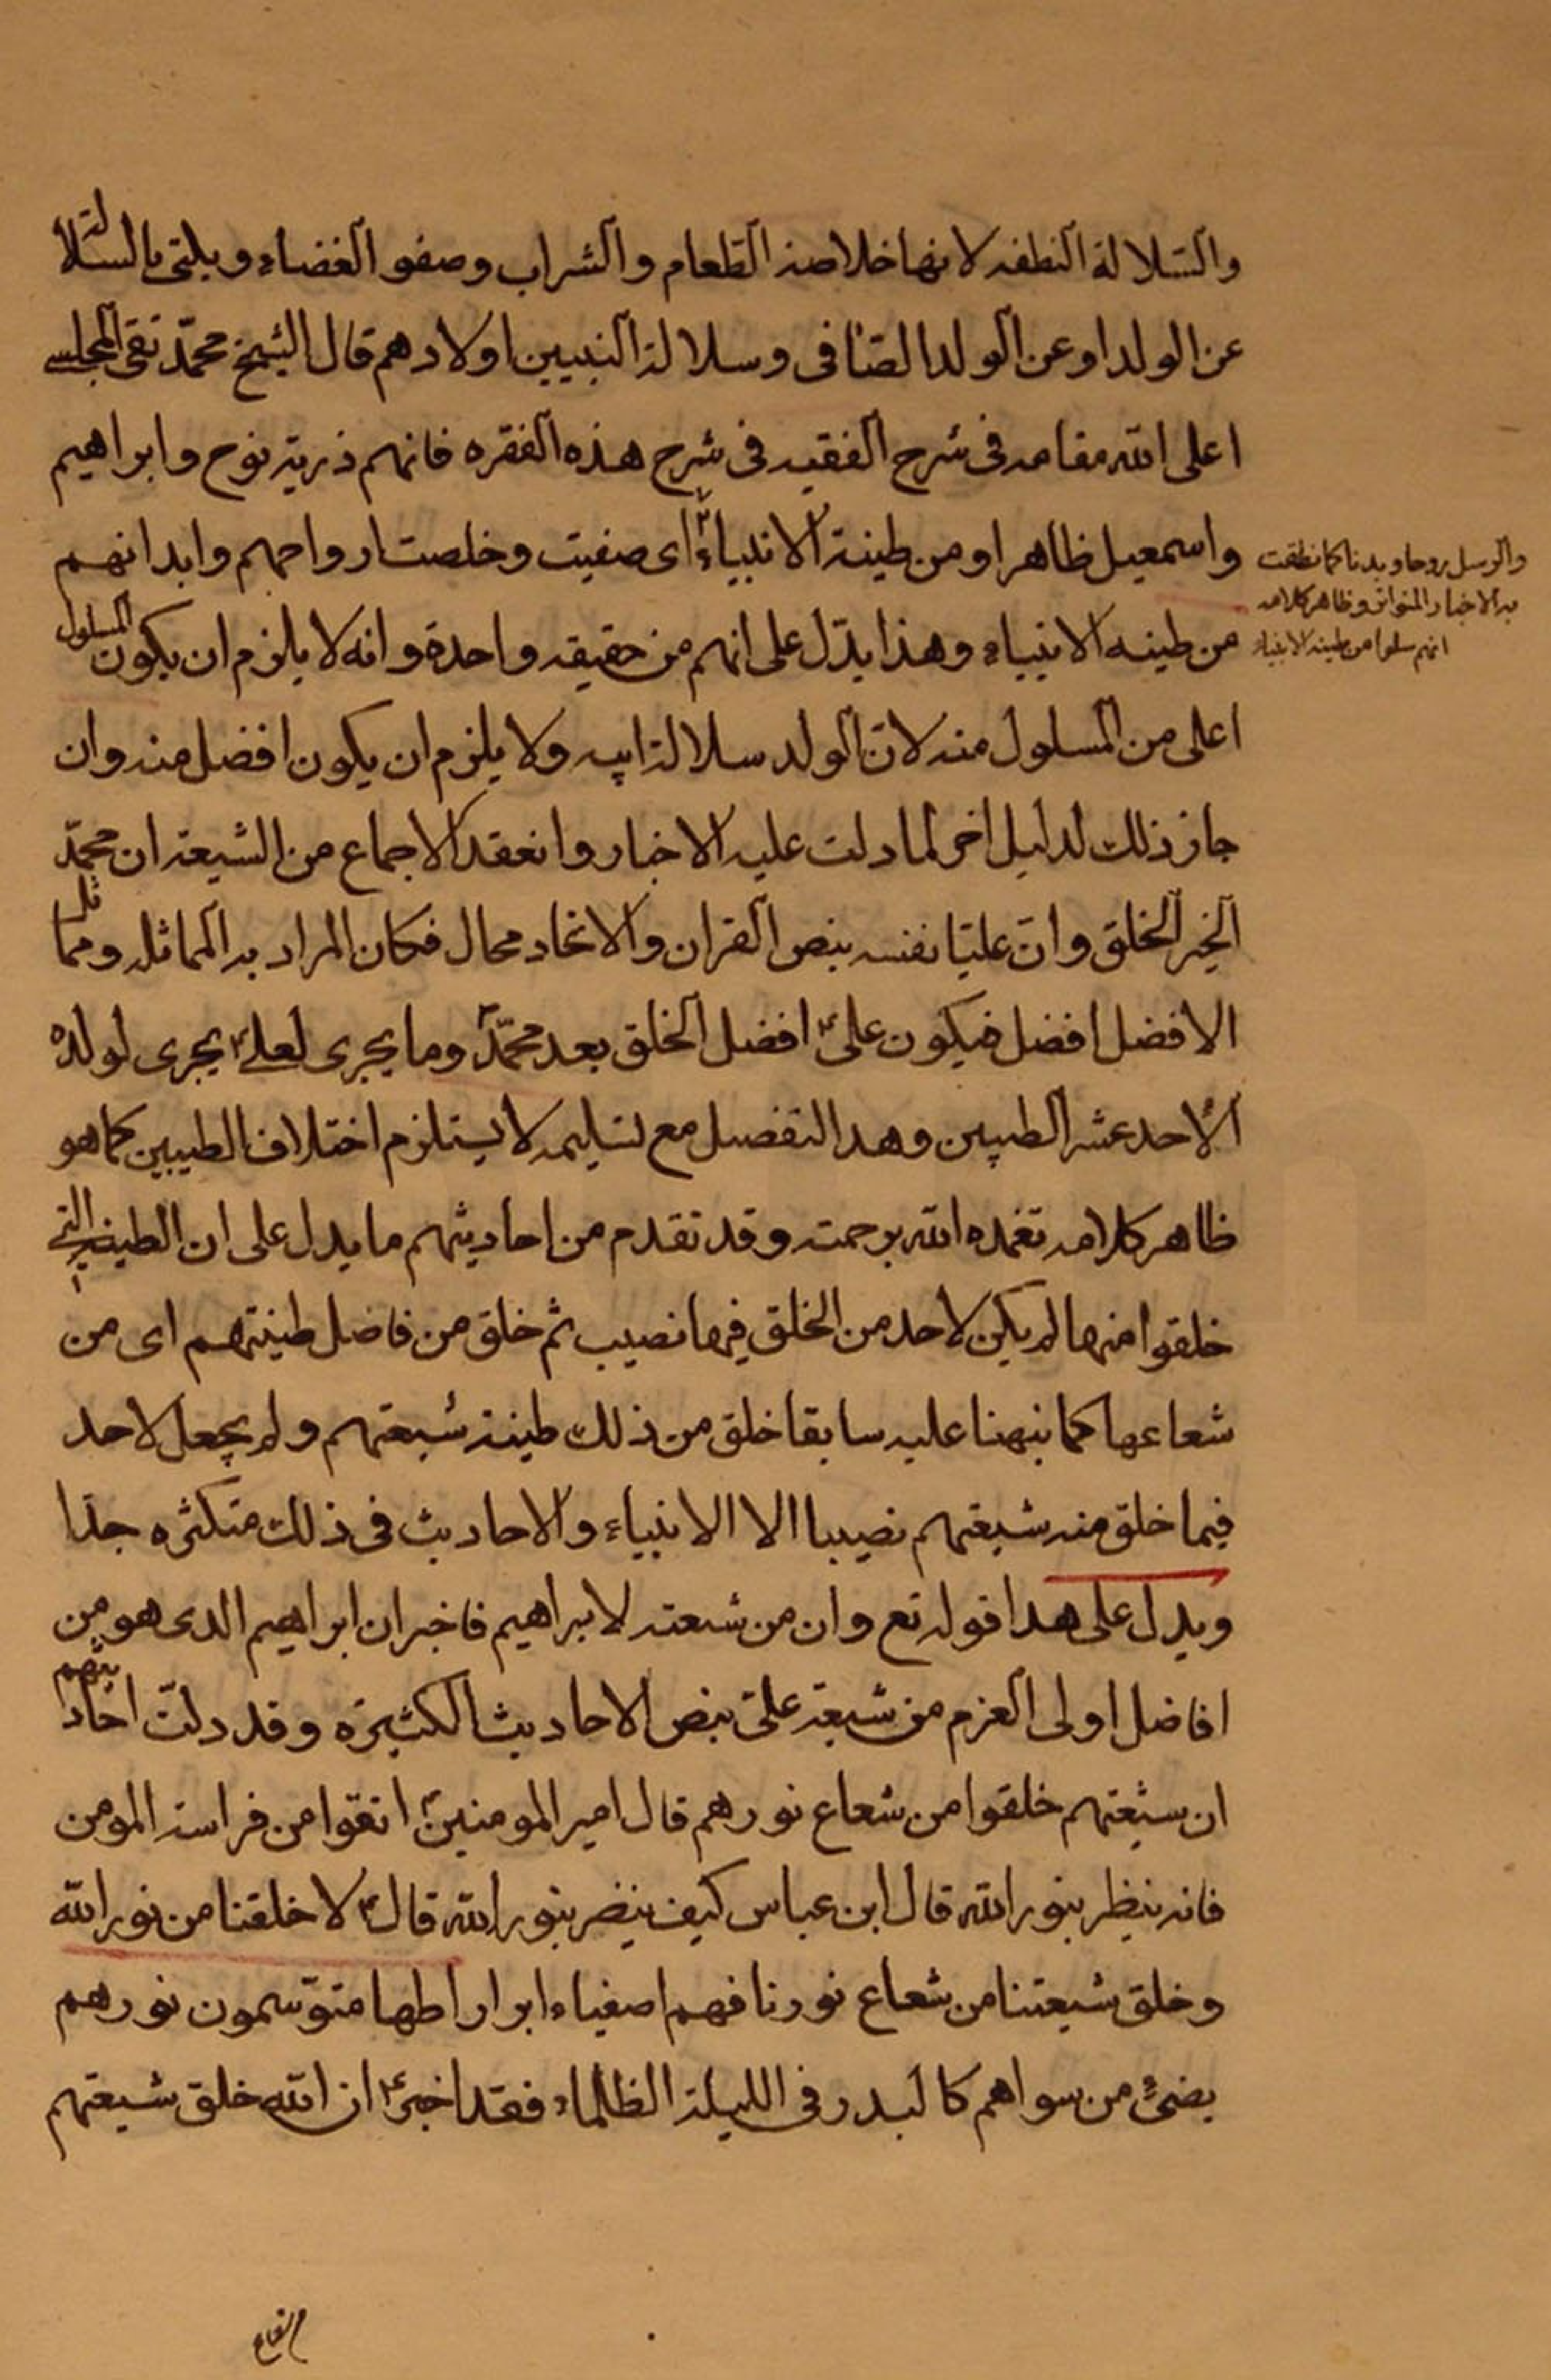 والسّلالة النطفه لانها خلاصة الطعام والشراب وصفو الغضاء ويلتى بالسّلالة
عن الولد او عن الولد الصّافى وسلالة النبيين اولادهم قال الشيخ محمّد تقى المجلسے
اعلى الله مقامه فى شرح الفقيه فى شرح هذه الفقره فانهم ذرية نوح وابراهيم
واسمعيل ظاهرا ومن طينة الانبياء اى صفيت وخلصت ارواحهم وابدانهم
والرسل روحا وبدنا كما نطقت
به الاخبار المتواتره وظاهر كلامه
انهم سلوا من طينه الانبياء
من طينه الانبياء وهذا يدّل على انهم من حقيقه واحدة وانه لا يلزم ان يكون المسلول
اعلى من المسلول منه لانّ الولد سلالة ابيه ولا يلزم ان يكون افضل منه وان
جاز ذلك لدليل اخر لما دلت عليه الاخبار وانعقد الاجماع من الشيعة ان محمّد
الخير الخلق وانّ عليّا نفسه بنص القران والاتحاد محال فكان المراد به المماثله ومماثل
الافضل افضل فيكون علىؑ افضل الخلق بعد محمّدؐ وما يجرى لعلےؑ يجرى لولده
الاحد عشر الطيبين وهدا التفصيل مع تسليمه لا يستلزم اختلاف الطيبين كما هو
ظاهر كلامه تغمده الله برحمته وقد تقدم من احاديثهم ما يدل على ان الطينه التے
خلقوا منها لم يكن لاحد من الخلق فيها نصيب ثم خلق من فاضل طينتهم اى من
شعاعها كما نبهنا عليه سابقا خلق من ذلك طينة شيعتهم ولم يجعل لاحد
فيما خلق منه شيعتهم نصيبا الا الانبياء والاحاديث فى ذلك متكثره جدّا
ويدل على هدا قوله تع وان من شيعته لابراهيم فاخبر ان ابراهيم الدى هو من
افاضل اولى العزم من شيعة علىّ بنص الاحاديث الكثيره وقد دلّت احاديثهم
ان شيعتهم خلقوا من شعاع نورهم قال امير المومنينؑ اتقوا من فراسة المومن
فانه ينظر بنور الله قال ابن عباس كيف ينضر بنور الله قالؑ لا خلقنا من نور الله
وخلق شيعتنا من شعاع نورنا فهم اصفياء ابرار اطهار متوّسمون نورهم
يضىء من سواهم كالبدر فى الليلة الظلماء فقد اخبرؑ ان الله خلق شيعتهم
من شعاع